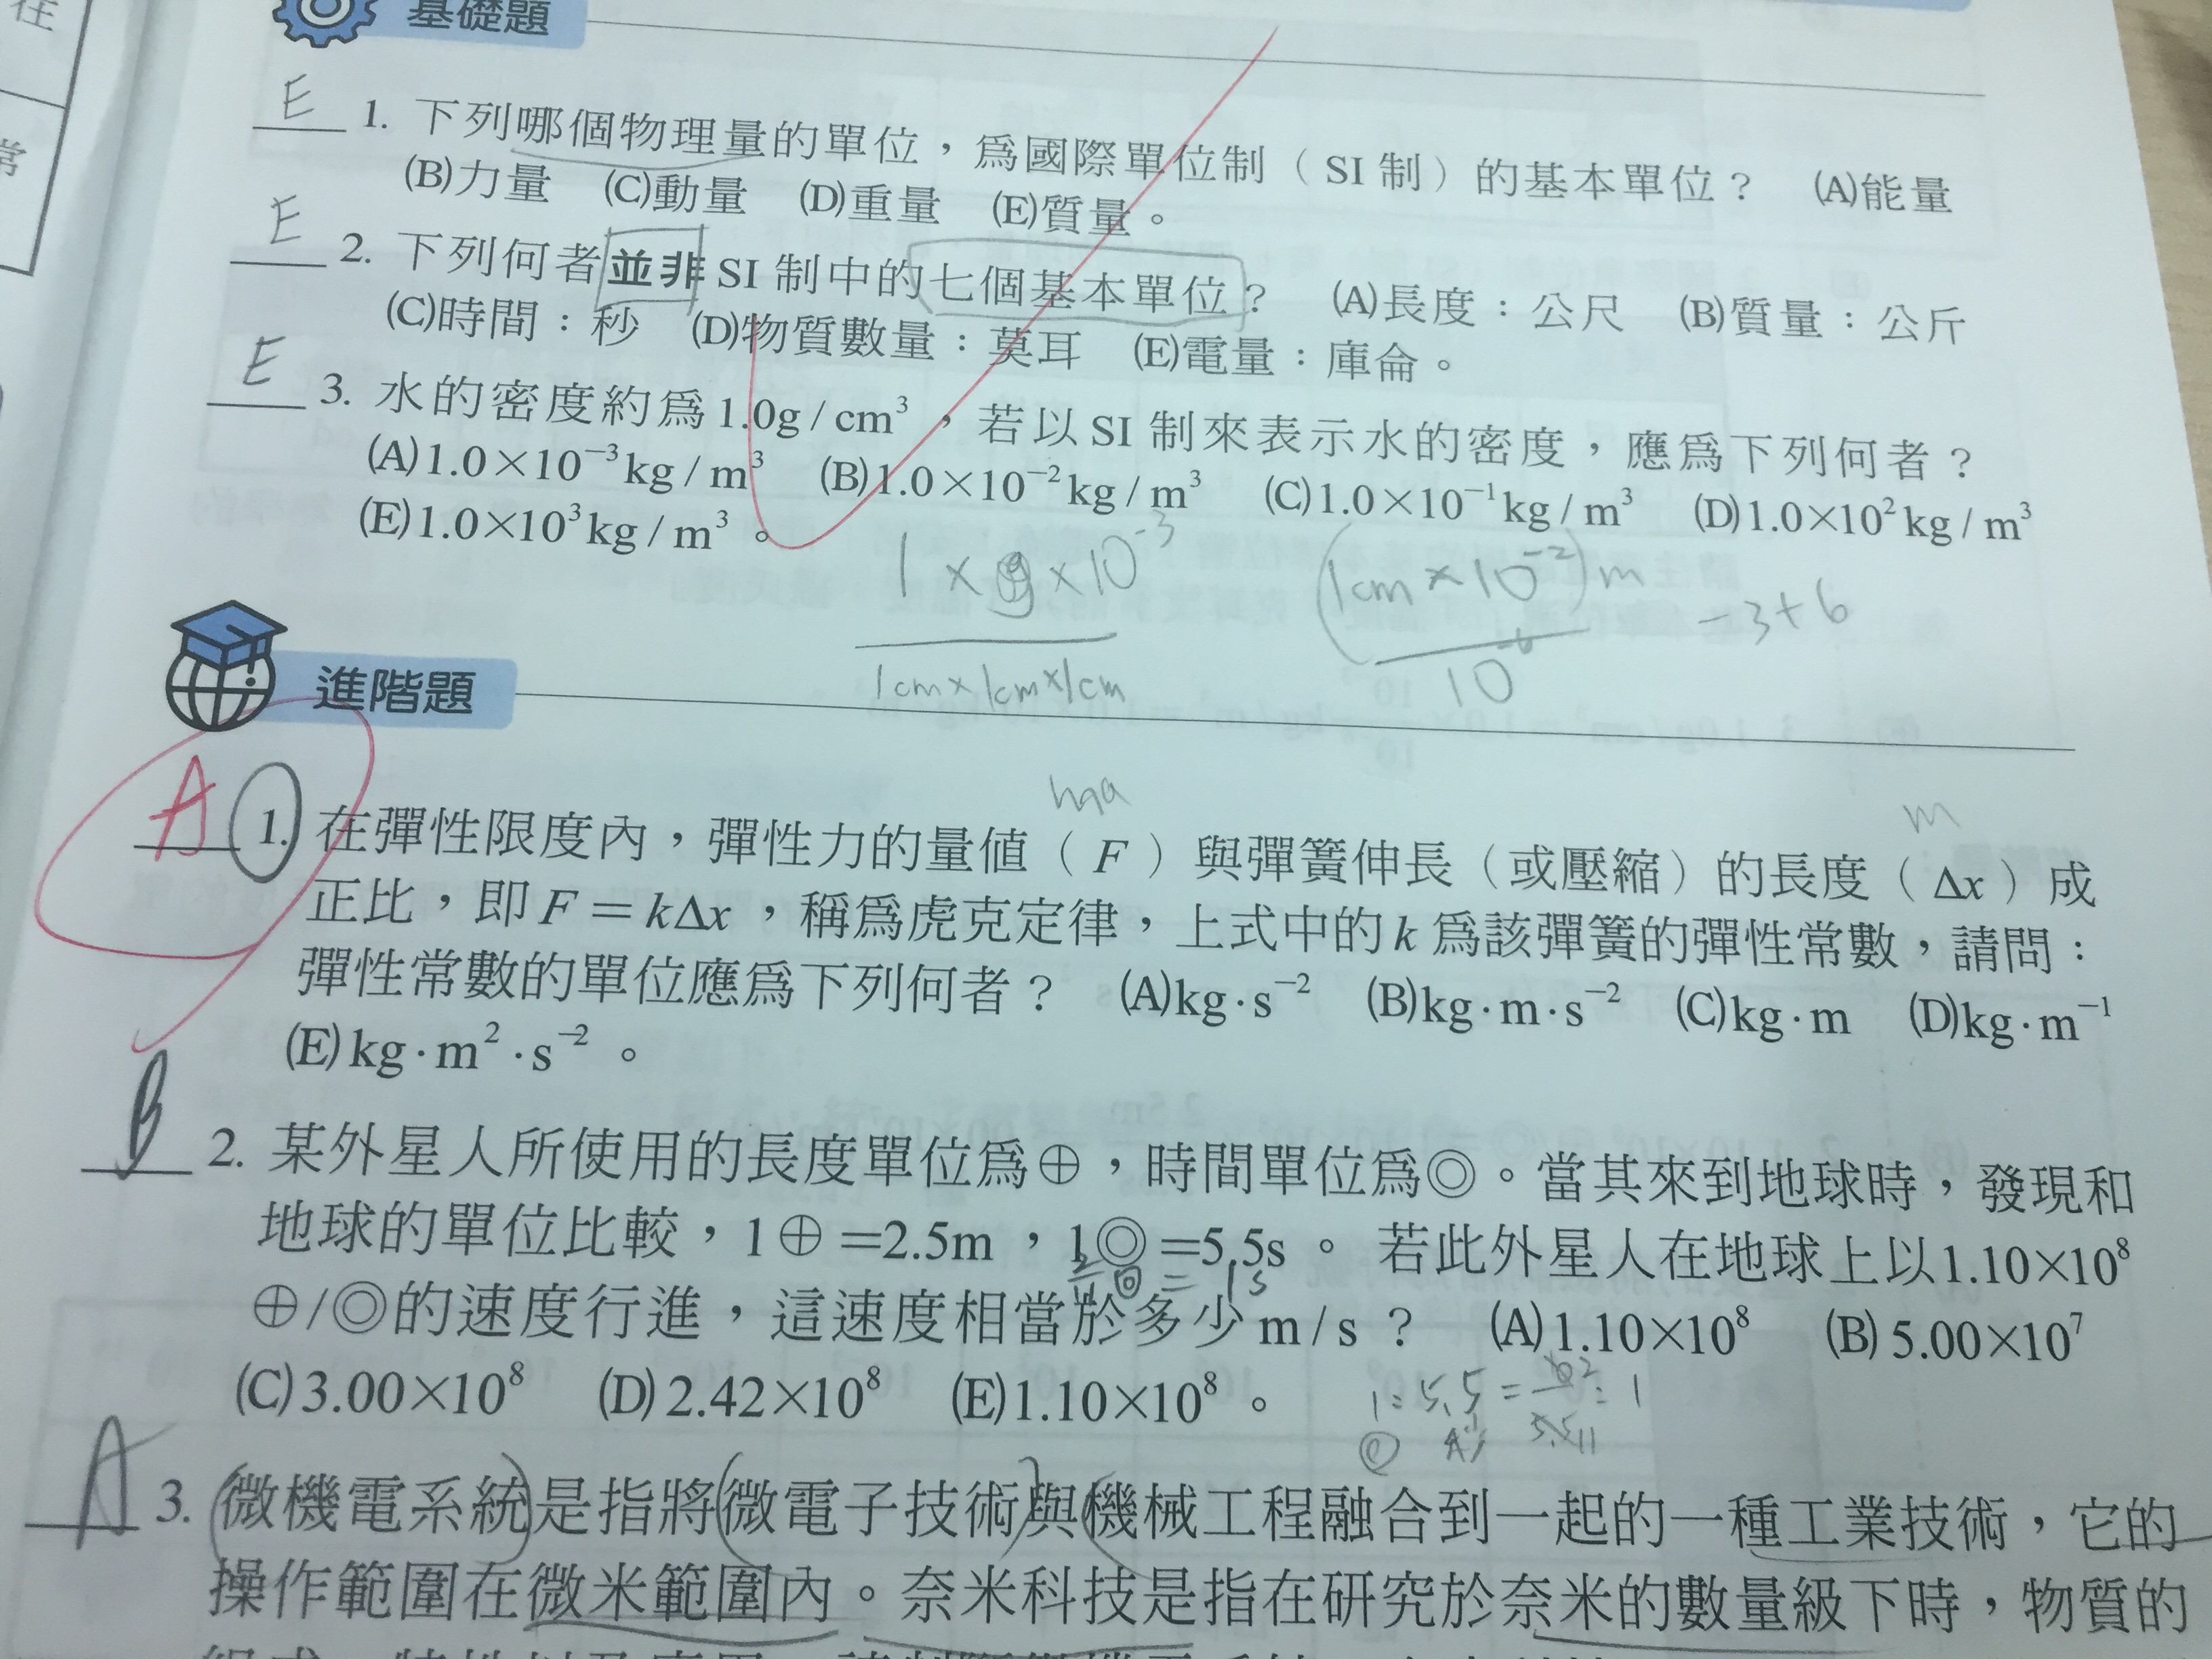 在
常
基礎題
E 1. 下列哪個物理量的單位，為國際單位制（SI 制）的基本單位？ (A)能量
(B)力量 (C)動量 (D)重量 (E)質量。
E 2. 下列何者並非 SI 制中的七個基本單位？ (A)長度：公尺 (B)質量：公斤
(C)時間：秒 (D)物質數量：莫耳 (E)電量：庫侖。
E 3. 水的密度約為1.0g/cm³，若以 SI 制來表示水的密度，應為下列何者？
(A)1.0×10⁻³kg/m³ (B)1.0×10⁻²kg/m³ (C)1.0×10⁻¹kg/m³ (D)1.0×10²kg/m³
(E)1.0×10³kg/m³。
1×g×10⁻³
1cm×1cm×1cm
(1cm×10⁻²)m
10⁻⁶
-3+6
進階題
ma
m
A 1. 在彈性限度內，彈性力的量值（F）與彈簧伸長（或壓縮）的長度（Δx）成
正比，即F＝kΔx，稱為虎克定律，上式中的k為該彈簧的彈性常數，請問：
彈性常數的單位應為下列何者？ (A)kg·s⁻² (B)kg·m·s⁻² (C)kg·m (D)kg·m⁻¹
(E)kg·m²·s⁻²。
B 2. 某外星人所使用的長度單位為⊕，時間單位為◎。當其來到地球時，發現和
地球的單位比較，1⊕＝2.5m，1◎＝5.5s。若此外星人在地球上以1.10×10⁸
2/11 ◎ = 1s
⊕/◎的速度行進，這速度相當於多少m/s？ (A)1.10×10⁸ (B)5.00×10⁷
(C)3.00×10⁸ (D)2.42×10⁸ (E)1.10×10⁸。
1:5.5=
A 3. 微機電系統是指將微電子技術與機械工程融合到一起的一種工業技術，它的
操作範圍在微米範圍內。奈米科技是指在研究於奈米的數量級下時，物質的